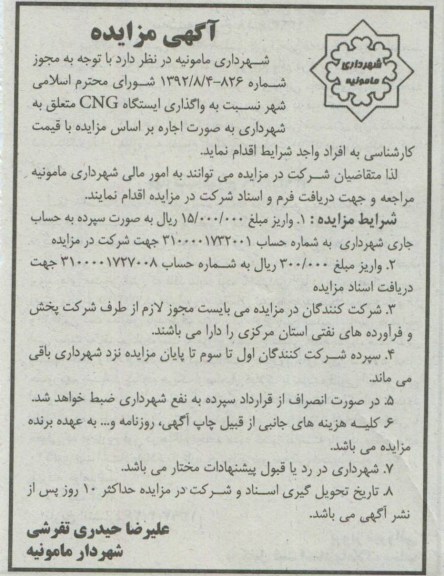 آگهی مزایده
شهرداری
مامونیه
شهرداری مامونیه در نظر دارد با توجه به مجوز
شماره ۸۲۶-۱۳۹۲/۸/۴ شورای محترم اسلامی
شهر نسبت به واگذاری ایستگاه CNG متعلق به
شهرداری به صورت اجاره بر اساس مزایده با قیمت
کارشناسی به افراد واجد شرایط اقدام نماید.
لذا متقاضیان شرکت در مزایده می توانند به امور مالی شهرداری مامونیه
مراجعه و جهت دریافت فرم و اسناد شرکت در مزایده اقدام نمایند.
شرایط مزایده : ۱. واریز مبلغ ۱۵/۰۰۰/۰۰۰ ریال به صورت سپرده به حساب
جاری شهرداری به شماره حساب ۳۱۰۰۰۰۱۷۳۲۰۰۱ جهت شرکت در مزایده
۲. واریز مبلغ ۳۰۰/۰۰۰ ریال به شماره حساب ۳۱۰۰۰۰۱۷۲۷۰۰۸ جهت
دریافت اسناد مزایده
۳. شرکت کنندگان در مزایده می بایست مجوز لازم از طرف شرکت پخش
و فرآورده های نفتی استان مرکزی را دارا می باشند.
۴. سپرده شرکت کنندگان اول تا سوم تا پایان مزایده نزد شهرداری باقی
می ماند.
۵. در صورت انصراف از قرارداد سپرده به نفع شهرداری ضبط خواهد شد.
۶. کلیه هزینه های جانبی از قبیل چاپ آگهی، روزنامه و... به عهده برنده
مزایده می باشد.
۷. شهرداری در رد یا قبول پیشنهادات مختار می باشد.
۸. تاریخ تحویل گیری اسناد و شرکت در مزایده حداکثر ۱۰ روز پس از
نشر آگهی می باشد.
علیرضا حیدری تفرشی
شهردار مامونیه